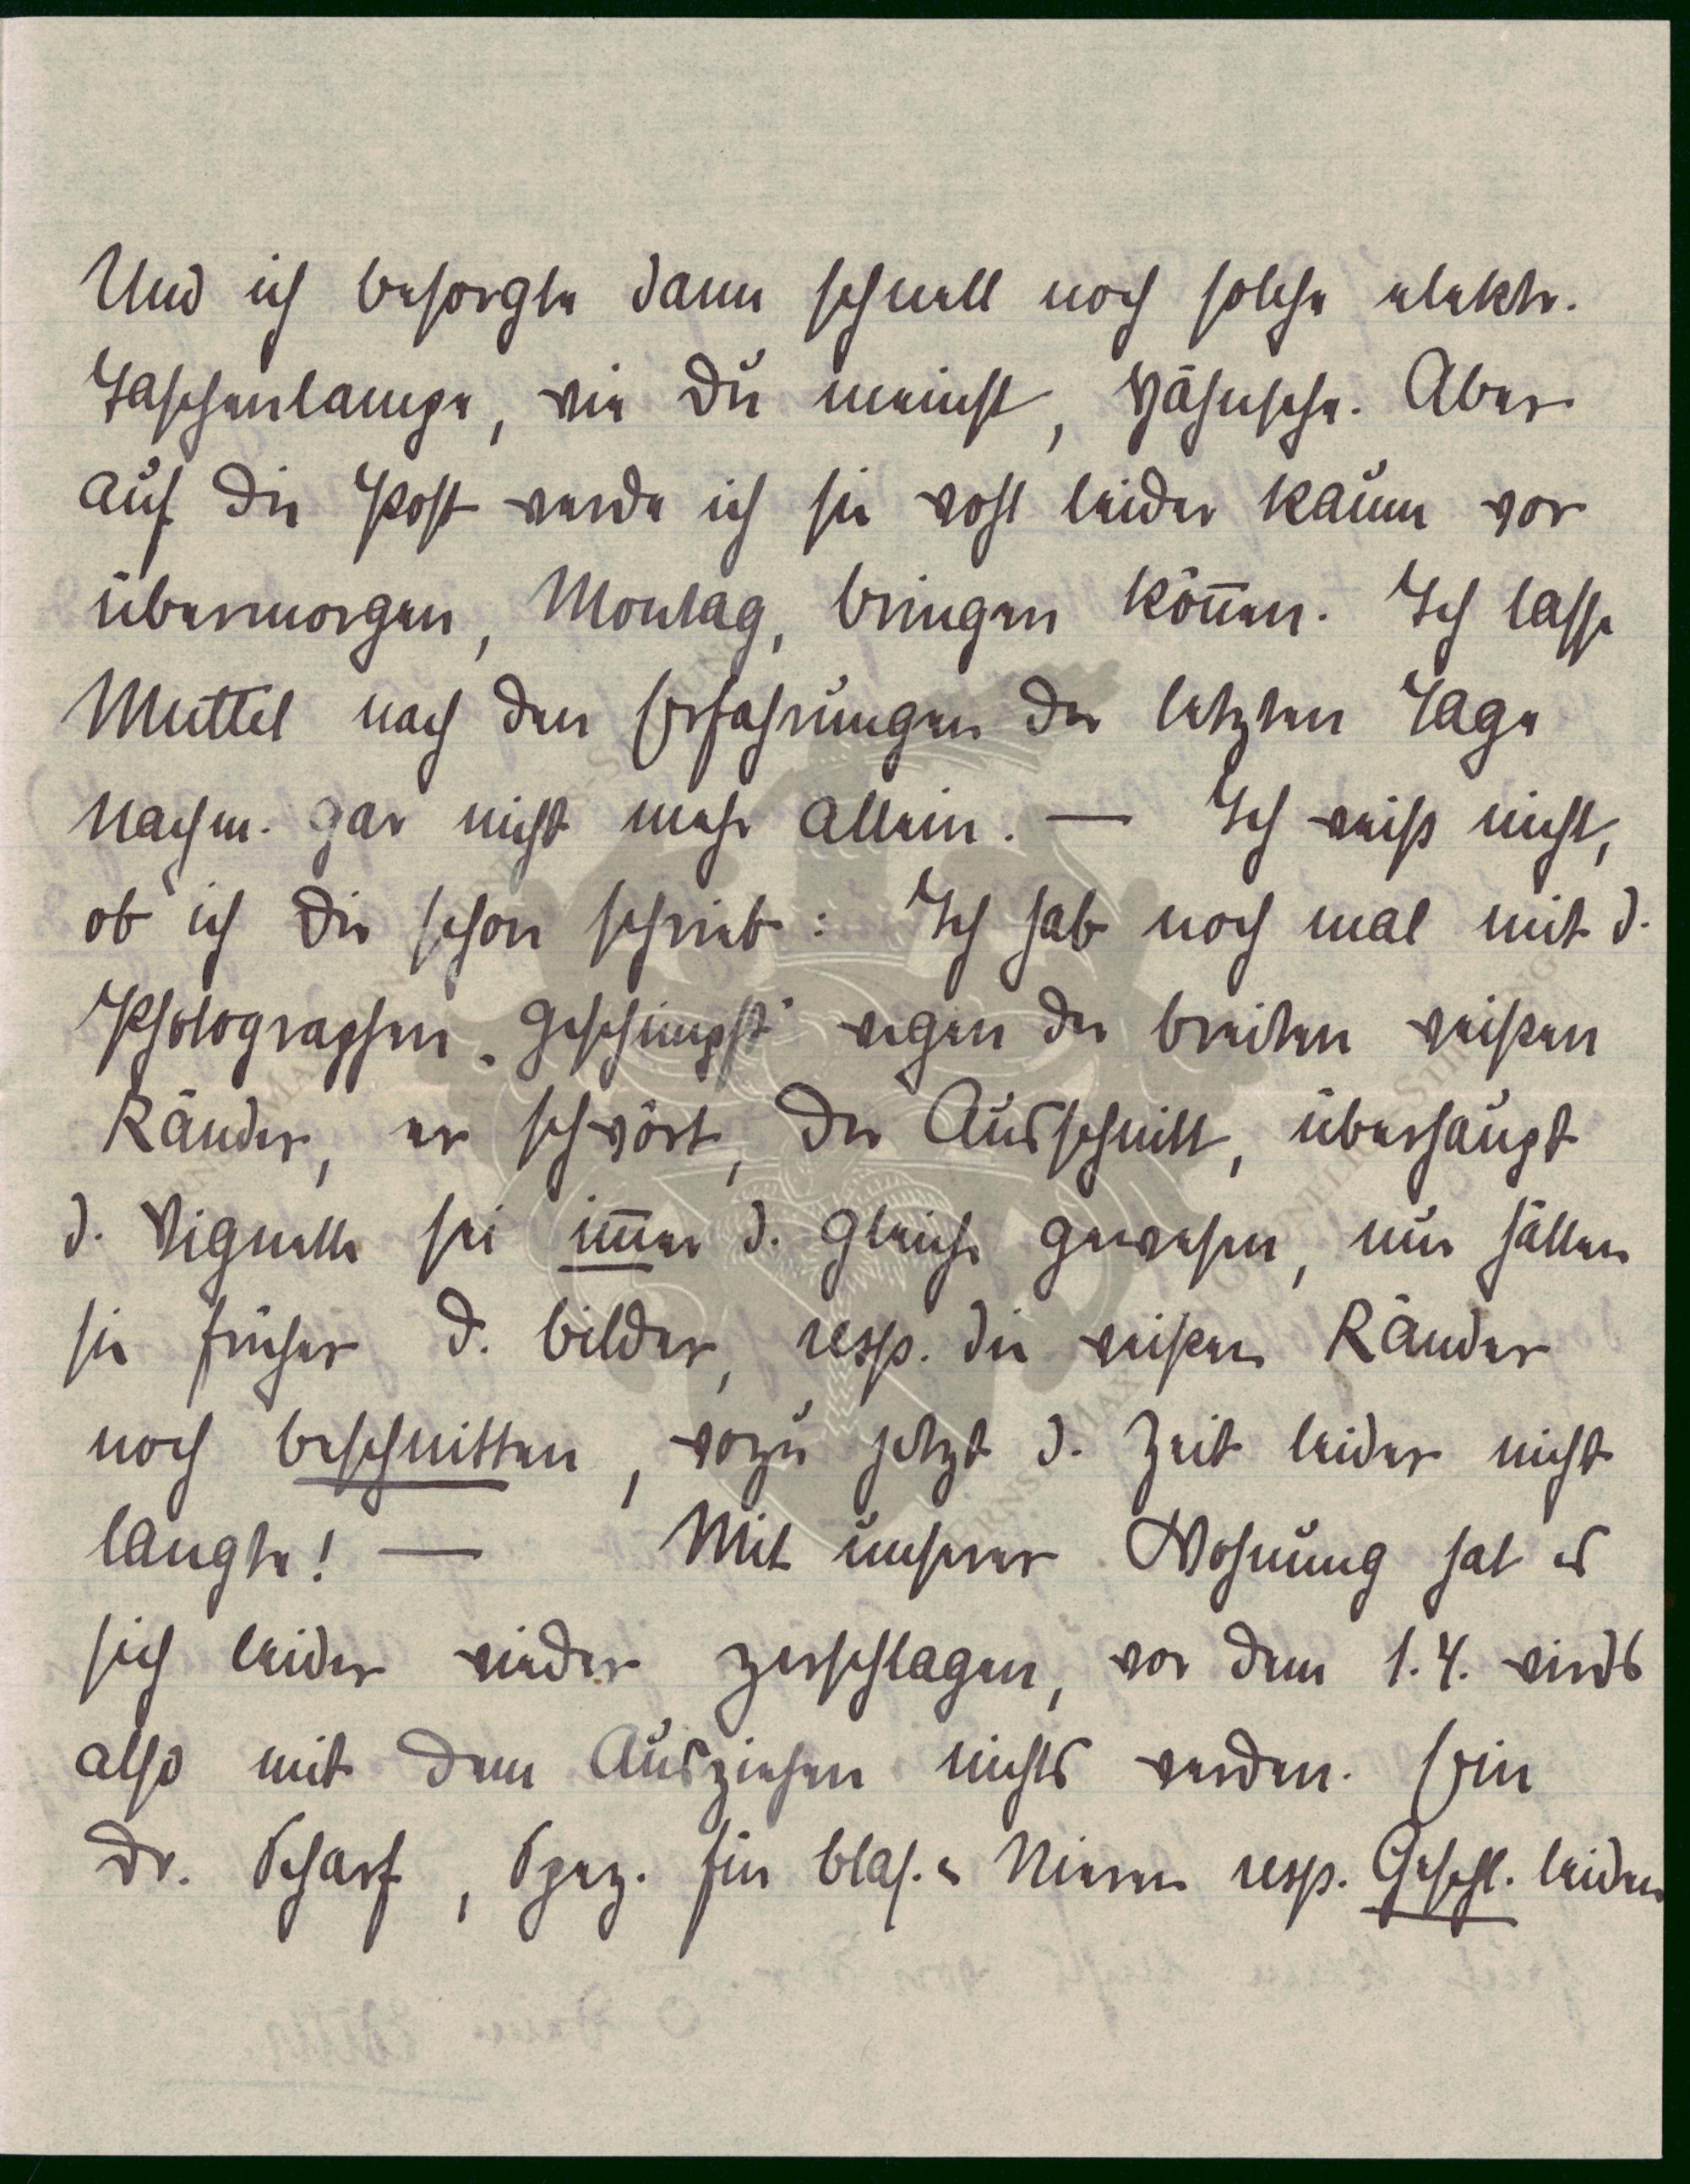 Und ich besorgte dann schnell noch solche elektr.
Taschenlampe, wie Du meinst, Hähnsche. Aber
auf die Post werde ich sie wohl leider kaum vor
übermorgen, Montag, bringen können. Ich lasse
Muttel nach den Erfahrungen der letzten Tage
nachm. gar nicht mehr allein. — Ich weiß nicht,
ob ich Dir schon schrieb: Ich hab noch mal mit d.
Photographen „geschimpft" wegen der breiten weißen
Ränder, er schwört, der Ausschnitt, überhaupt
d. Vignette sei immer d. gleiche gewesen, nur hätten
sie früher d. Bilder, resp. die weißen Ränder
noch beschnitten, wozu jetzt d. Zeit leider nicht
langte! — Mit unserer Wohnung hat es
sich leider wieder zerschlagen, vor dem 1.4. wirds
also mit dem Ausziehen nichts werden. Ein
Dr. Scharf, Spez. für Blas. u Nieren resp. Geschl. leiden